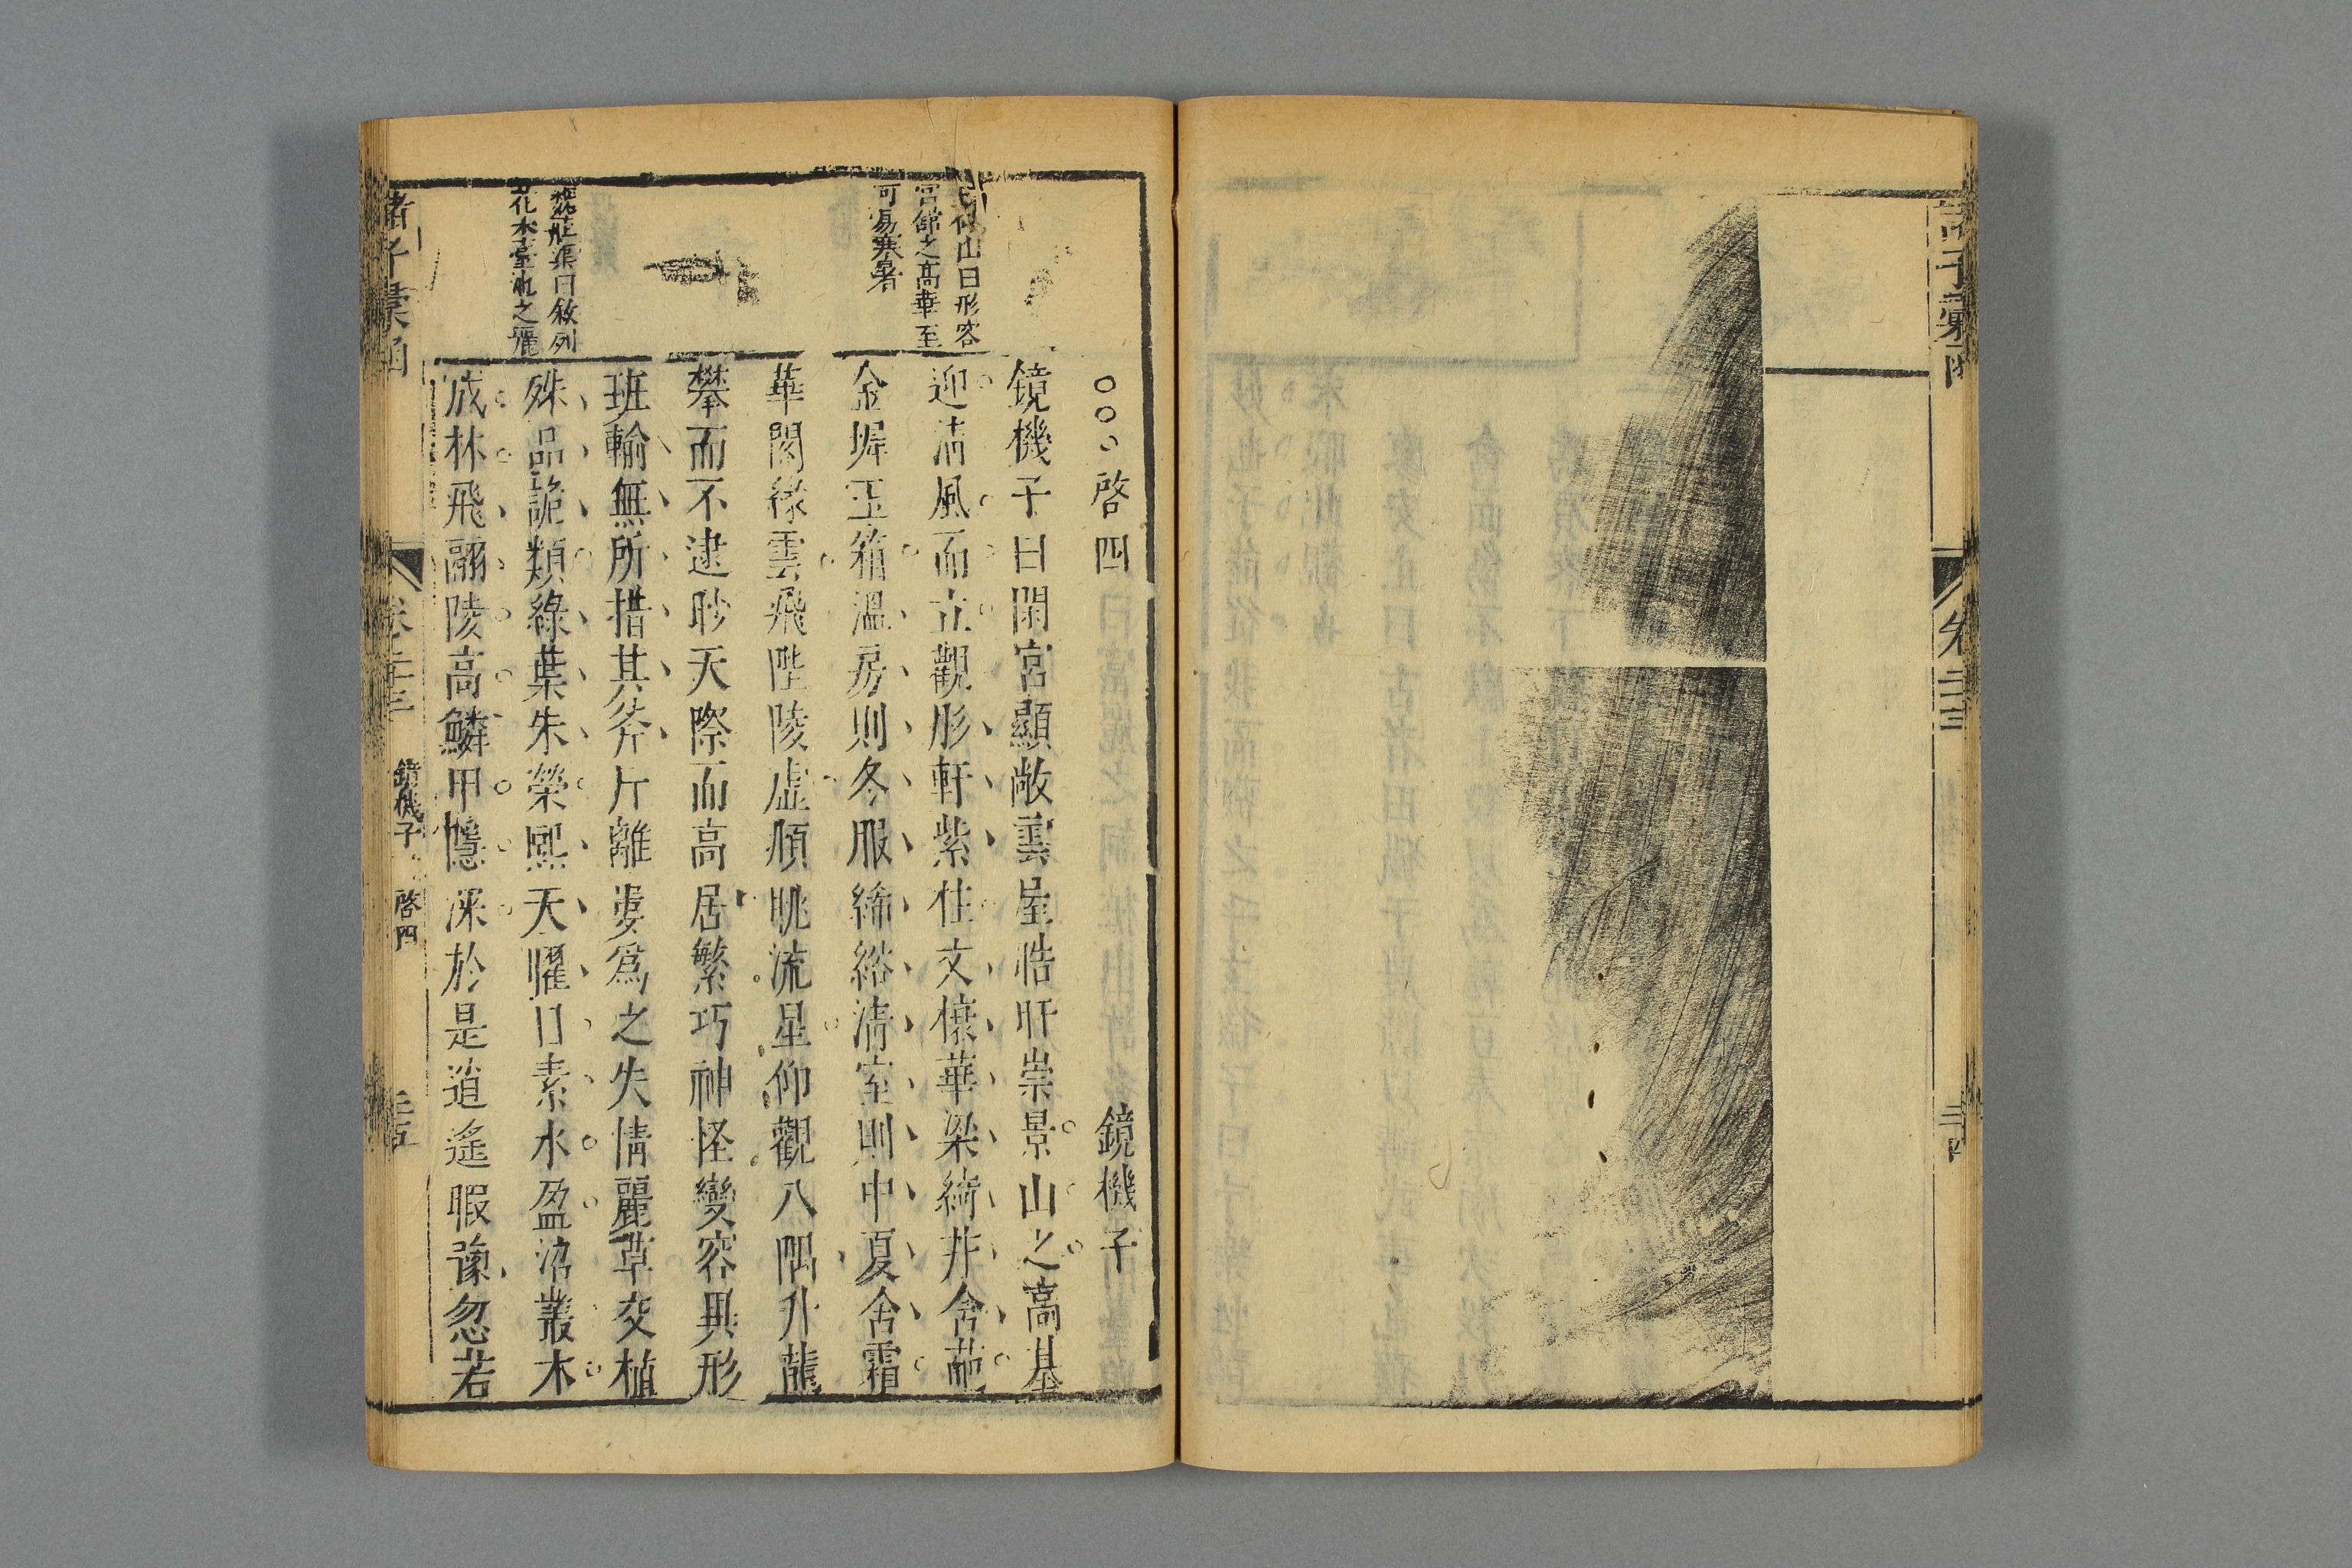 諸子彙函
卷二十三
二十四
啓四
鏡機子
鏡機子曰閑宮顯敞雲屋皓旰崇景山之高基
迎清風而立觀彤軒紫柱文榱華梁綺井含葩
金墀玉箱溫房則冬服絺綌清室則中夏含霜
華閣緣雲飛陛陵虛頫眺流星仰觀八隅升龍
攀而不逮眇天際而高居繁巧神怪變容異形
班輸無所措其斧斤離婁爲之失情麗草交植
殊品詭類綠葉朱榮熙天曜日素水盈沼叢木
成林飛翮陵高鱗甲隱深於是逍遙暇豫忽若
山曰形容
宮館之高華至
可易寒暑
莊渠曰敘列
花木臺池之麗
諸子彙函
卷二十三
鏡機子
啓四
二十五